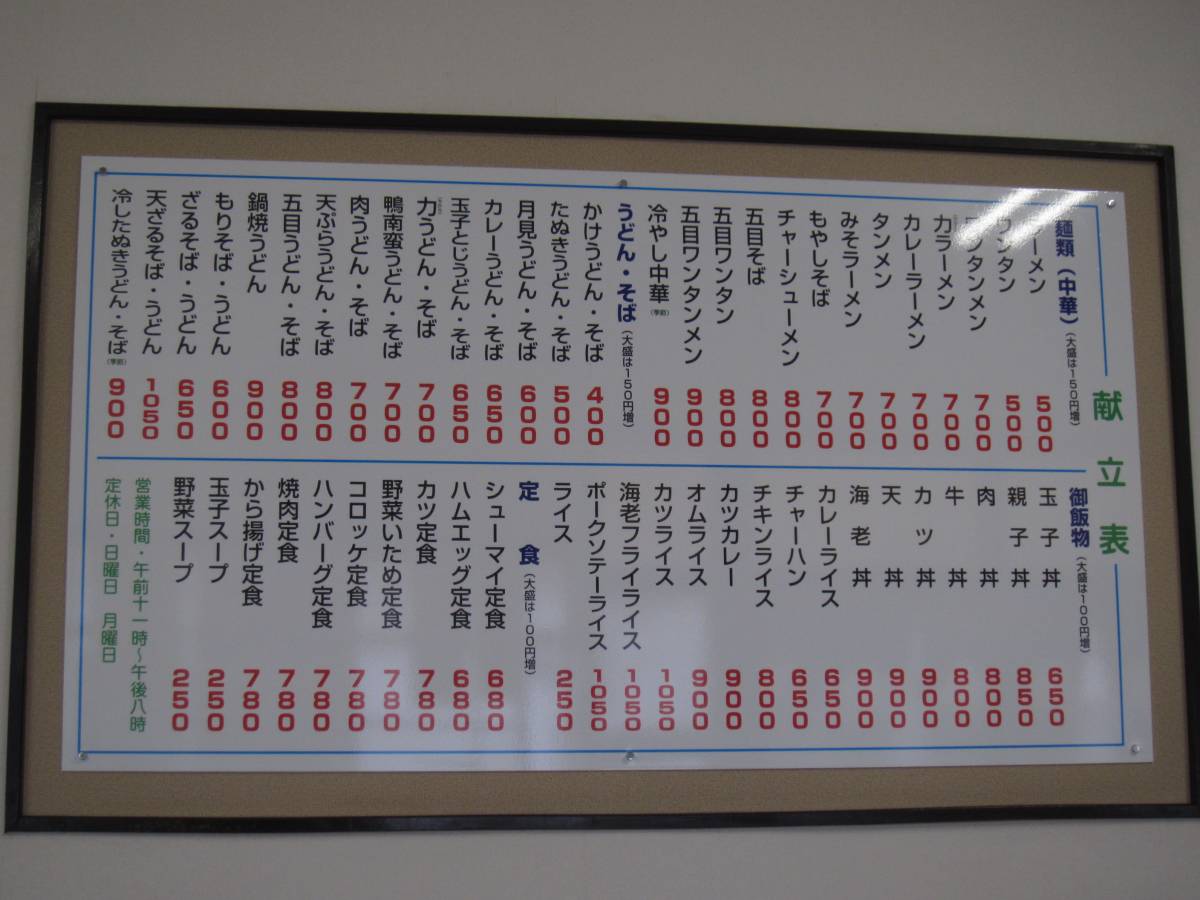 献立表
麺類（中華）（大盛は150円増）
ーメン 500
ワンタン 500
ワンタンメン 700
力ラーメン 700
カレーラーメン 700
タンメン 700
みそラーメン 700
もやしそば 700
チャーシューメン 800
五目そば 800
五目ワンタン 800
五目ワンタンメン 900
冷やし中華（季節） 900
うどん・そば（大盛は150円増）
かけうどん・そば 400
たぬきうどん・そば 500
月見うどん・そば 600
カレーうどん・そば 650
玉子とじうどん・そば 650
力うどん・そば 700
鴨南蛮うどん・そば 700
肉うどん・そば 700
天ぷらうどん・そば 800
五目うどん・そば 800
鍋焼うどん 900
もりそば・うどん 600
ざるそば・うどん 650
天ざるそば・うどん 1050
冷したぬきうどん・そば（季節） 900
御飯物（大盛は100円増）
玉子丼 650
親子丼 850
肉丼 800
牛丼 800
カツ丼 900
天丼 900
海老丼 900
カレーライス 650
チャーハン 650
チキンライス 800
カツカレー 900
オムライス 900
カツライス 1050
海老フライライス 1050
ポークソテーライス 1050
ライス 250
定食（大盛は100円増）
シューマイ定食 680
ハムエッグ定食 680
カツ定食 780
野菜いため定食 780
コロッケ定食 780
ハンバーグ定食 780
焼肉定食 780
から揚げ定食 780
玉子スープ 250
野菜スープ 250
営業時間・午前十一時～午後八時
定休日・日曜日 月曜日